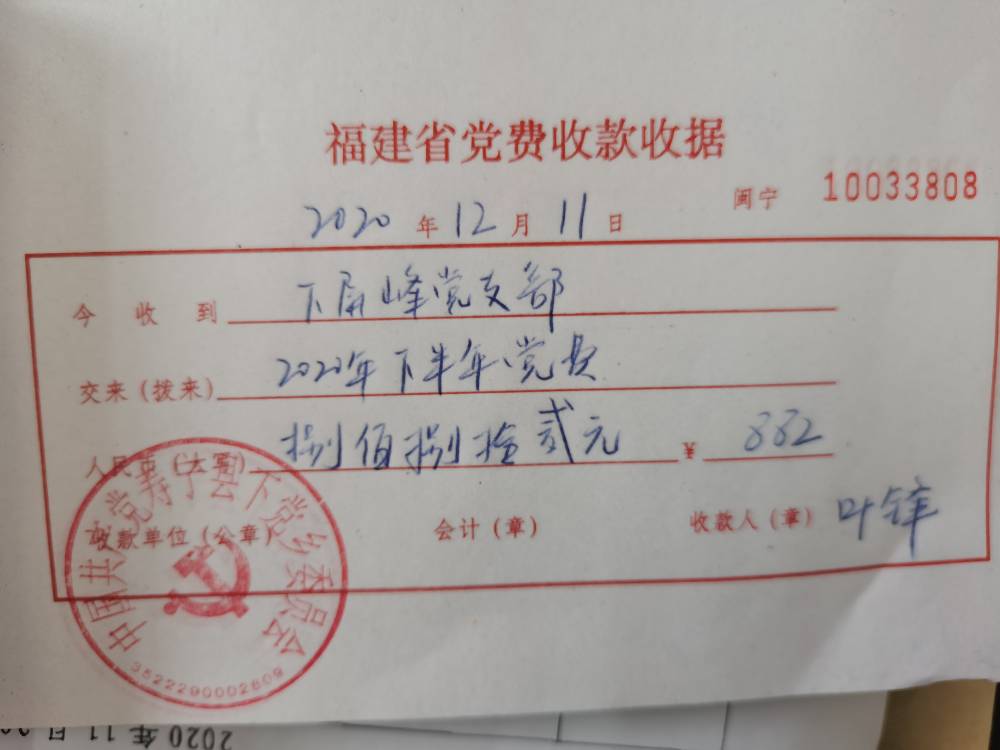 福建省党费收款收据
闽宁 10033808
2020 年 12 月 11 日
今收到 下屏峰党支部
交来（拨来） 2020年下半年党费
人民币（大写） 捌佰捌拾贰元 ¥ 882
收款单位（公章） 会计（章） 收款人（章） 叶锋
中国共产党寿宁县下党乡委员会
3522290002609
2020年11月